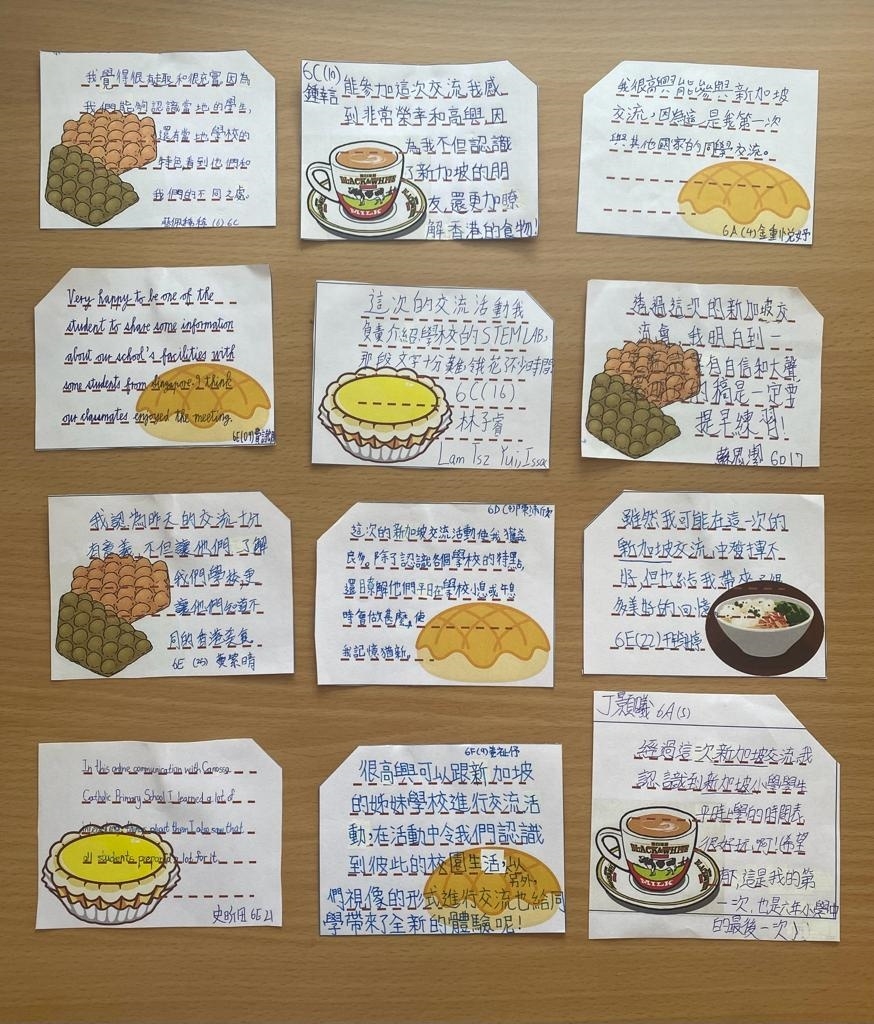 我覺得很有趣和很充實,因為
我們能夠認識當地的學生,
還有當地學校的
特色看到他們和
我們的不同之處。
(6) 6C
6C(10)
能參加這次交流我感
到非常榮幸和高興,因
為我不但認識
了新加坡的朋
友,還更加瞭
解香港的食物!
BLACK&WHITE
MILK
我很高興能參與新加坡
交流,因為這是我第一次
與其他國家的同學交流。
6A(4)金重悅妤
Very happy to be one of the
student to share some information
about our school's facilities with
some students from Singapore. I think
our classmates enjoyed the meeting.
這次的交流活動我
負責介紹學校的STEM LAB,
那段文字十分難,我花不少時間
6C(16)
林子睿
Lam Tsz Yui, Issac
透過這次的新加坡交
流會,我明白到一
有自信和大聲
的稿是一定要
提早練習!
6D17
我認為昨天的交流十分
有意義,不但讓他們了解
我們學校,更
讓他們知道不
同的香港美食
6E (25) 黃紫晴
6D(9)
這次的新加坡交流活動使我獲益
良多。除了認識各個學校的特點,
還瞭解他們平日在學校小息或午息
時會做甚麼,使
我記憶猶新。
雖然我可能在這一次的
新加坡交流中發揮不
好,但也給我帶來了很
多美好的回憶
6E(22)
In this online communication with Canossa
Catholic Primary School I learned a lot of
interesting things about them I also saw that
all students prepared a lot for it.
6E21
6F(9)
很高興可以跟新加坡
的姊妹學校進行交流活
動,在活動中令我們認識
到彼此的校園生活,以
另外,
們視像的形式進行交流也給同
學帶來了全新的體驗呢!
丁顥曦 6A(5)
經過這次新加坡交流,我
認識到新加坡小學學生
平時上學的時間表
很好玩啊!(希望
有下,這是我的第
一次,也是六年小學中
的最後一次)
BLACK&WHITE
MILK